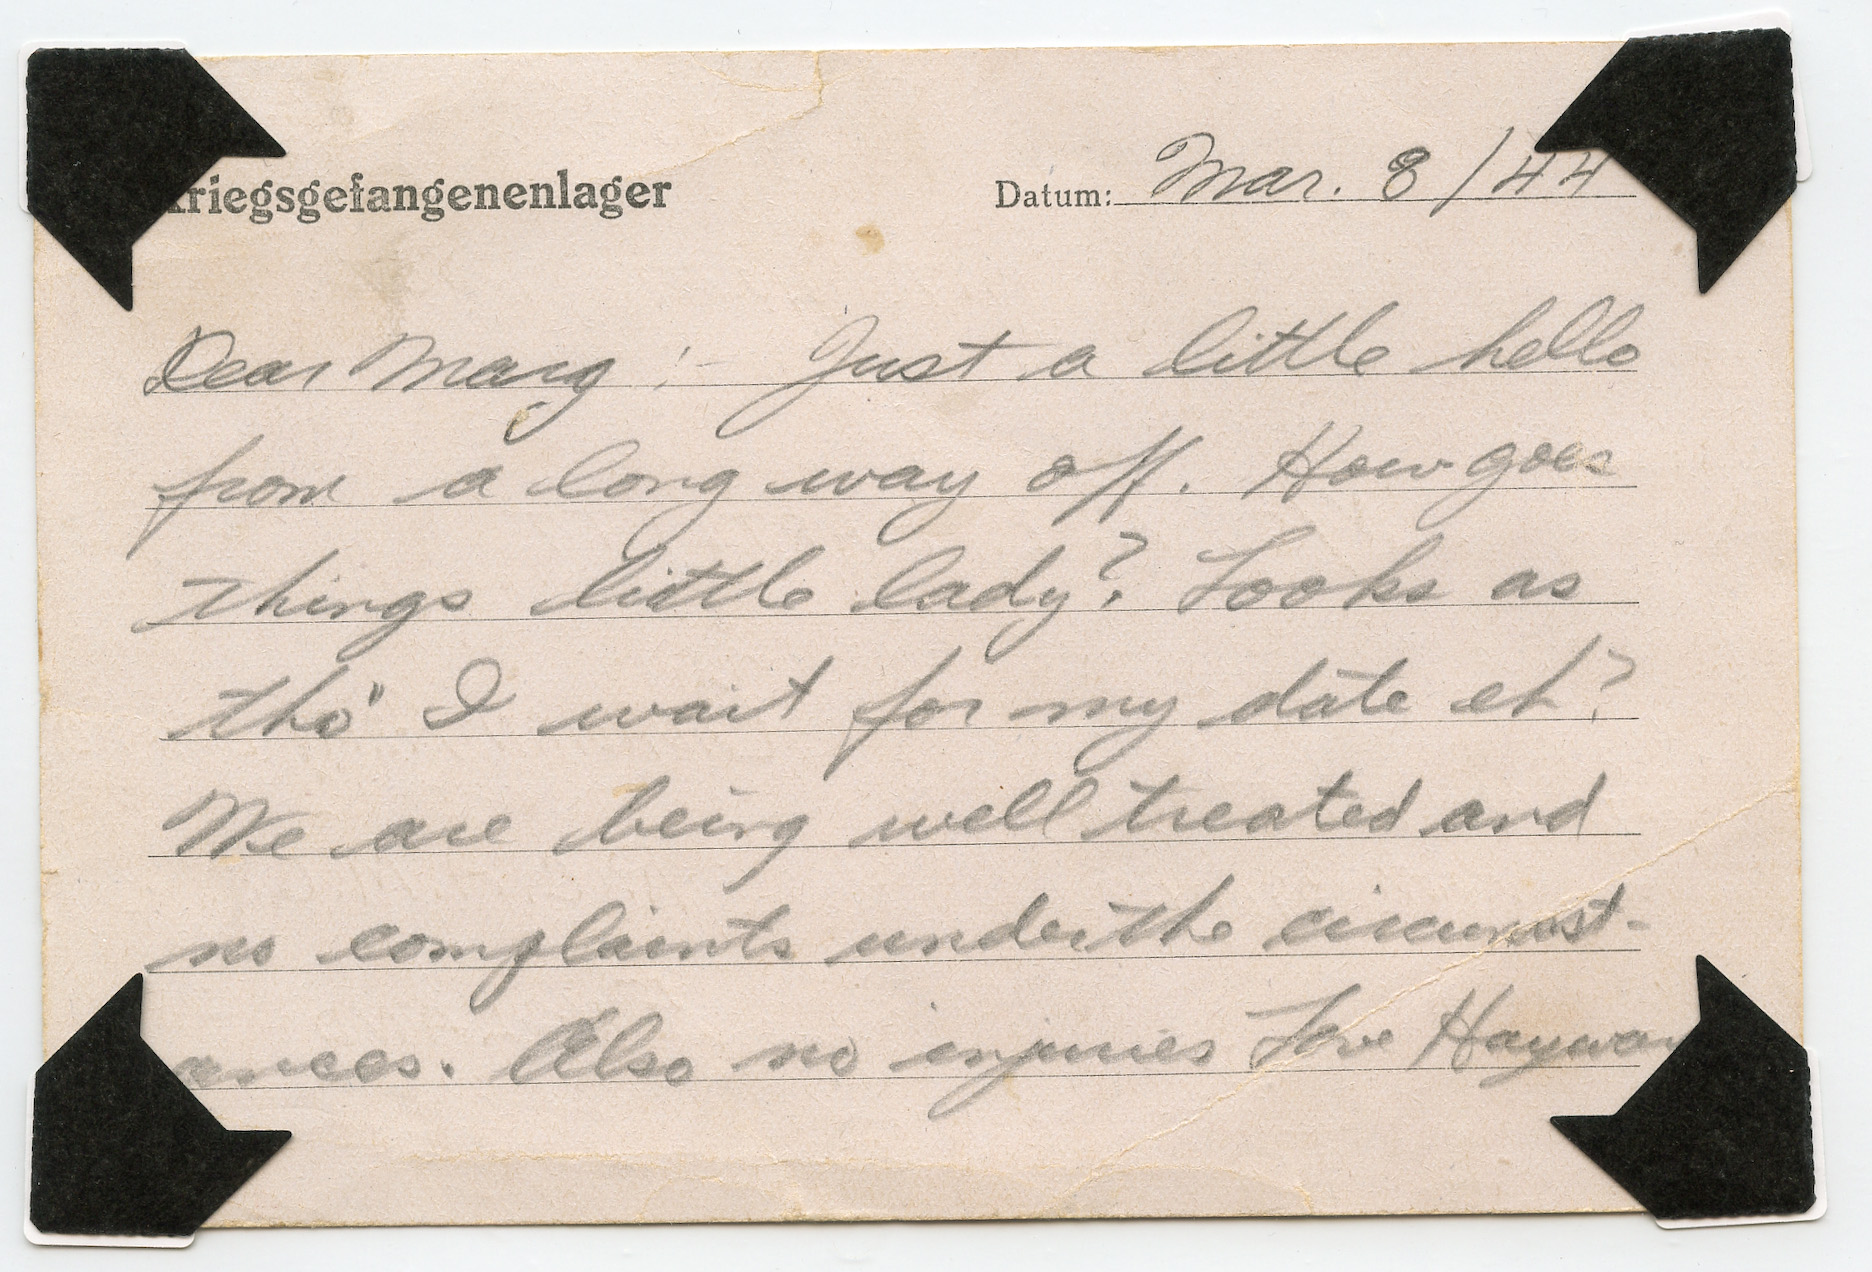 Kriegsgefangenenlager Datum: Mar. 8/44
Dear Marg :- Just a little hello
from a long way off. How goes
things little lady? Looks as
tho' I wait for my date eh?
We are being well treated and
no complaints under the circumst-
ances. Also no injuries Love Haywar